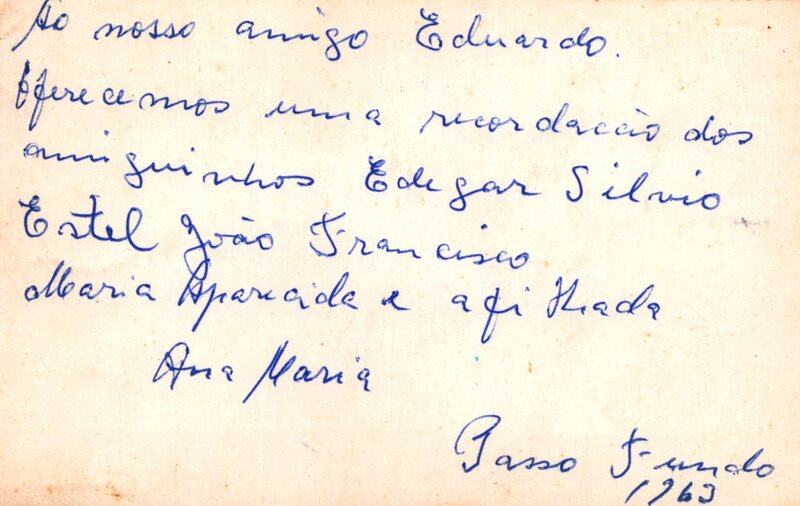 Ao nosso amigo Eduardo.
Oferecemos uma recordacão dos
amiguinhos Edegar Silvio
Estel João Francisco
Maria Aparecida e afilhada
Ana Maria
Passo Fundo
1963